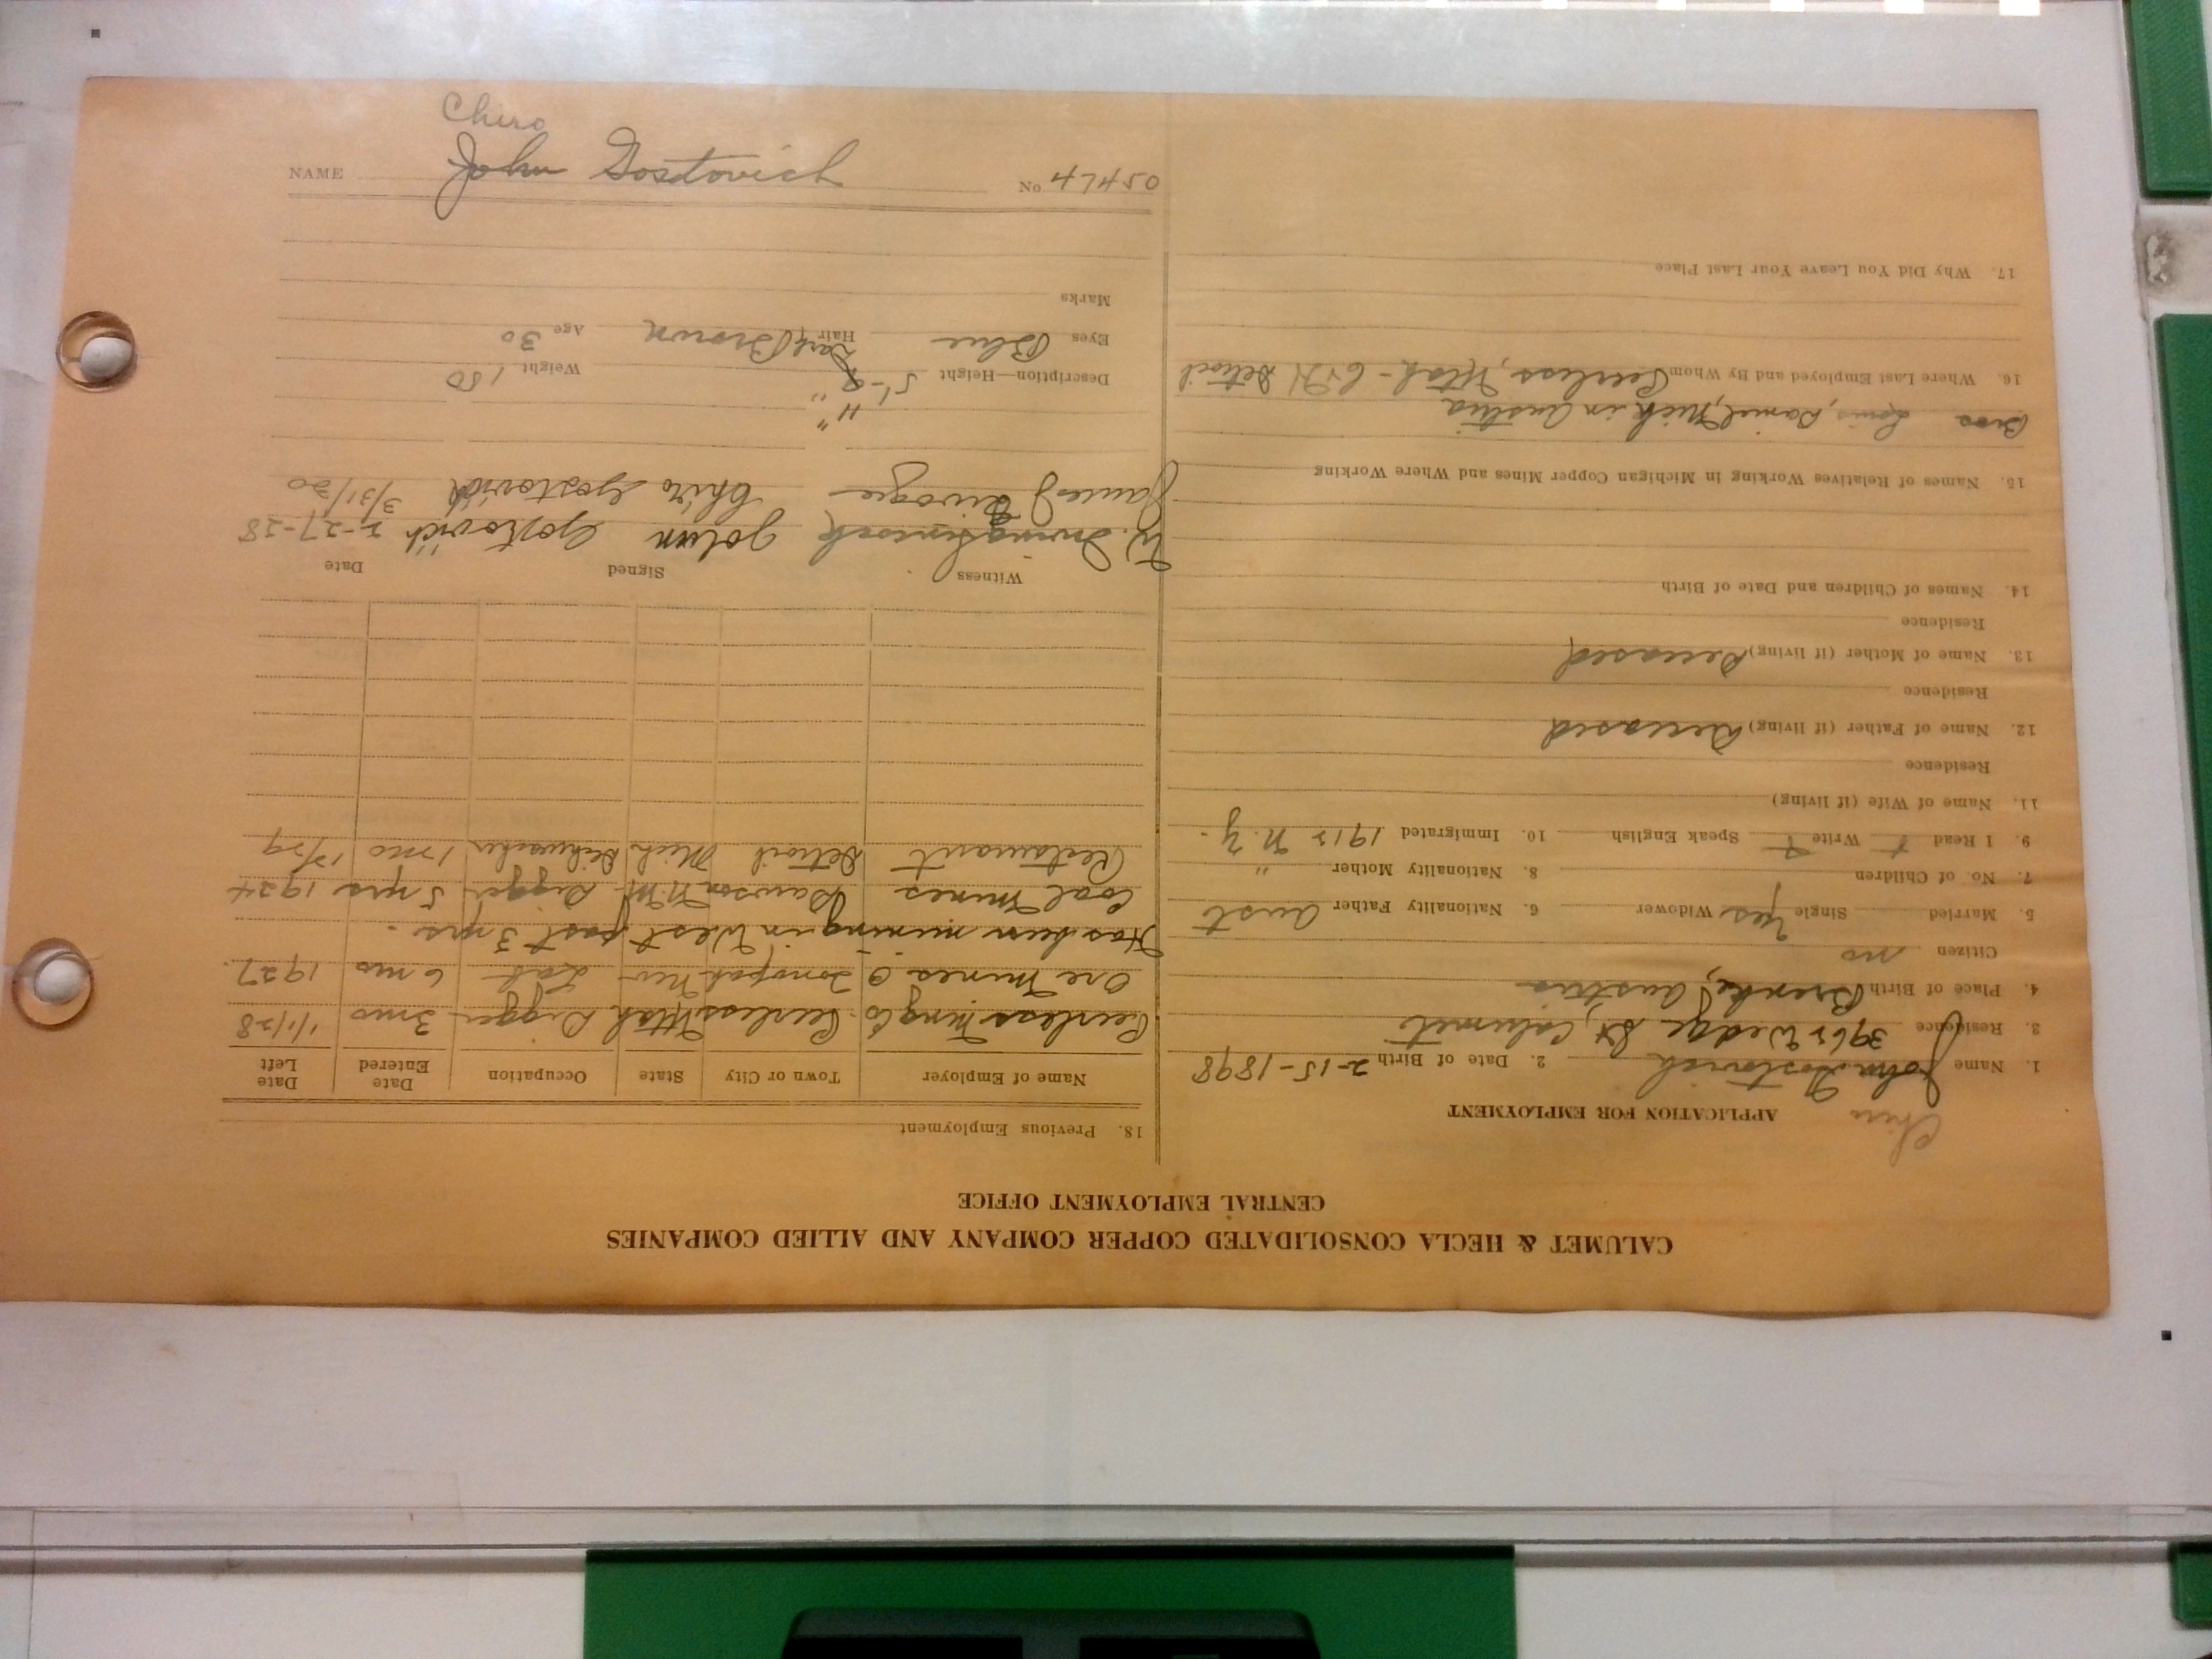 Chiro
NAME John Gostovich No 47450
CALUMET & HECLA CONSOLIDATED COPPER COMPANY AND ALLIED COMPANIES
CENTRAL EMPLOYMENT OFFICE
Chiro
APPLICATION FOR EMPLOYMENT
1. Name John Gostovich 2. Date of Birth 2-15-1898
3. Residence 3965 Wedge St, Calumet
4. Place of Birth Austria
Citizen no
5. Married Single Yes Widower 6. Nationality Father Aust
7. No. of Children 8. Nationality Mother "
9. I Read Write Speak English 10. Immigrated 1912 N.Y.
11. Name of Wife (if living)
Residence
12. Name of Father (if living) Deceased
Residence
13. Name of Mother (if living) Deceased
Residence
14. Names of Children and Date of Birth
15. Names of Relatives Working in Michigan Copper Mines and Where Working
Bros Louis, Daniel, Nick in Austria
16. Where Last Employed and By Whom Peerless, Utah - C&H Detroit
17. Why Did You Leave Your Last Place
18. Previous Employment
Name of Employer Town or City State Occupation Date Entered Date Left
Peerless Mng Co Peerless Utah Digger 3 mo 1/1/28
Ore Mines Tonopah Nev Lab 6 mo 1927
Has been mining in West past 3 yrs.
Coal Mines Dawson N.M. Digger 5 yrs 1924
Restaurant Detroit Mich Dishwasher 1 mo 12/29
Witness Signed Date
W. John Gostovich 2-27-28
James Chiro Gostovich 3/31/30
" "
Description—Height 5'-9 Weight 150
Eyes Blue Hair Dark Brown Age 30
Marks